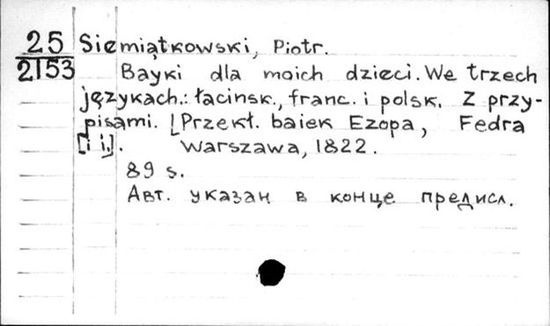 25 Siemiątkowski, Piotr.
2153 Bayki dla moich dzieci. We trzech
językach.: łacinsk., franc. i polsk. Z przy-
pisami. [Przekł. baiek Ezopa, Fedra
[i i.]. Warszawa, 1822.
89 s.
Авт. указан в конце предисл.